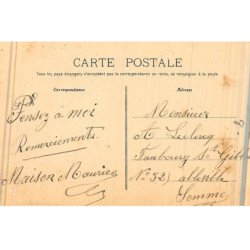 CARTE POSTALE
Tous les pays étrangers n'acceptent pas la correspondance au recto, se renseigner à la poste
Correspondance
Adresse
Pensez à moi
Remerciements.
Maison Maurice
Monsieur
A. Leclercq
Faubourg St Gilles
No 52) abbeville
Somme